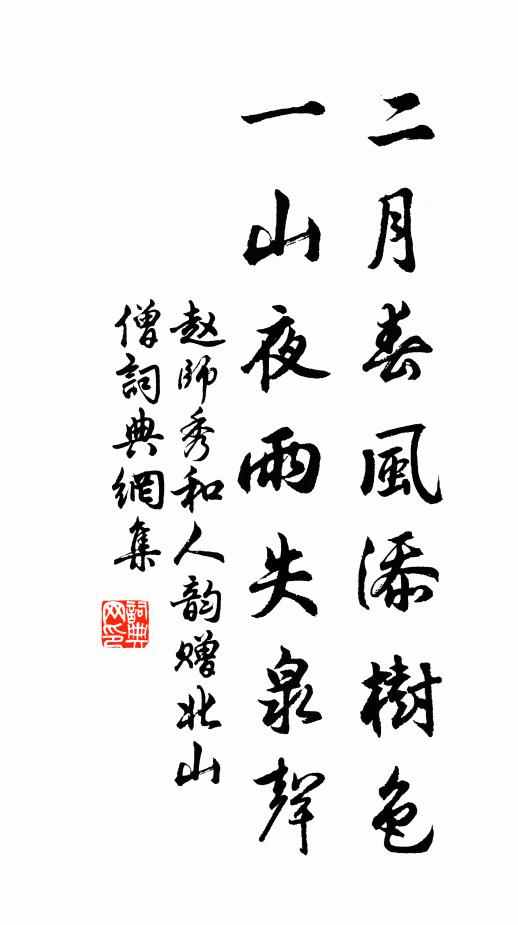 二月春風添樹色
一山夜雨失泉聲
赵師秀和人韵赠北山
僧詞典網集
詞典网印